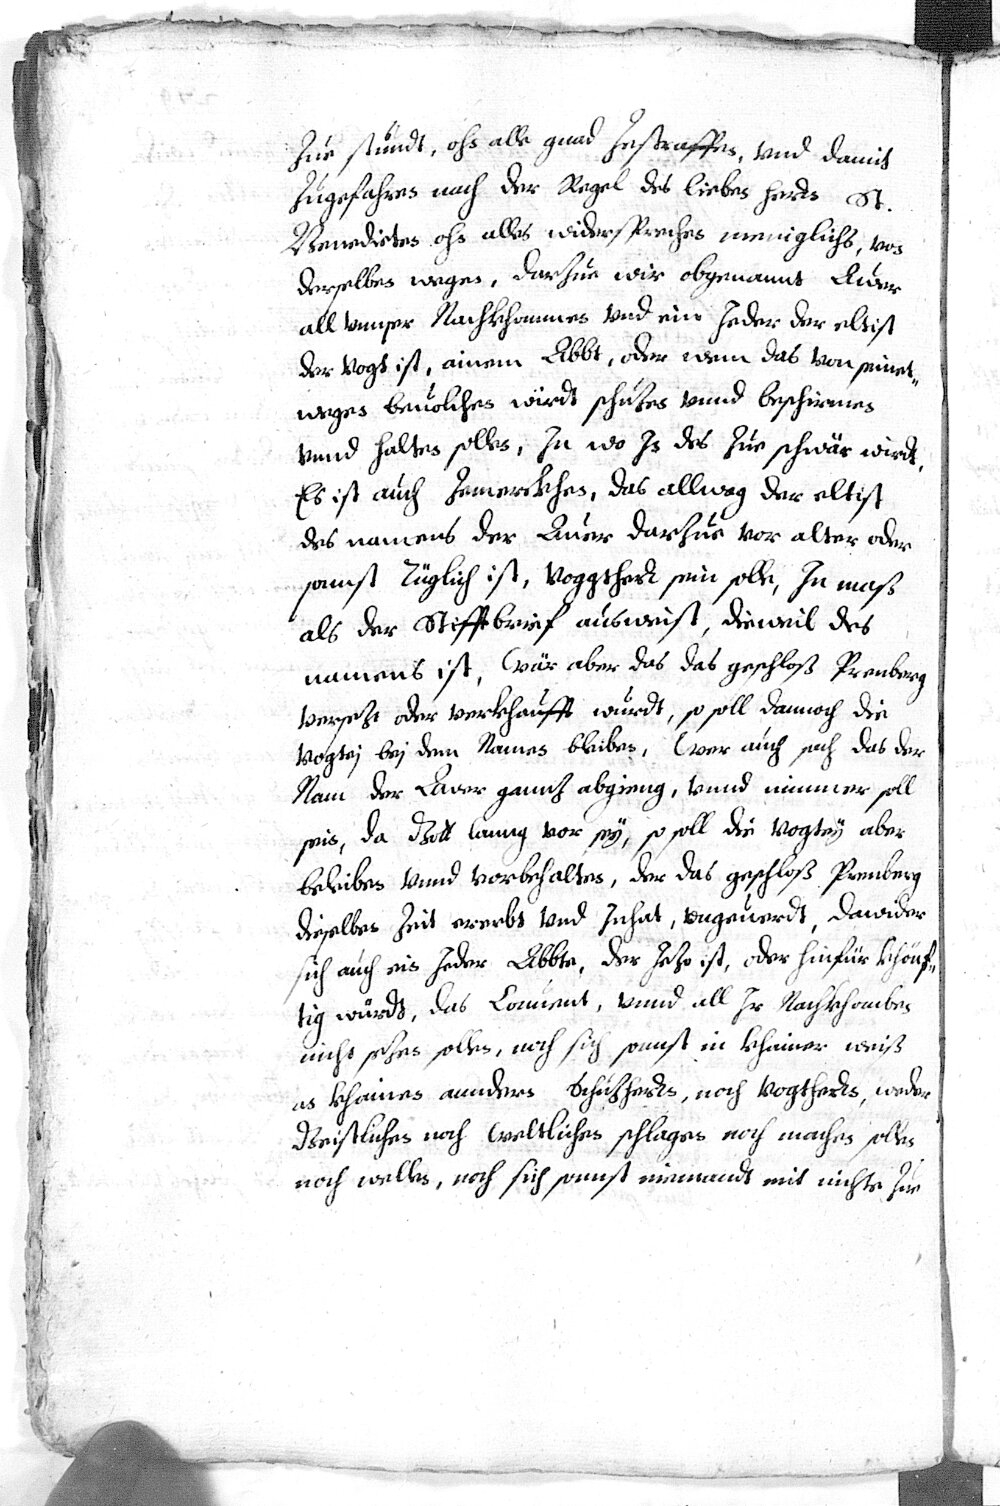 Zue stundt, ohn alle gnad Zestraffen, vnd damit
Zugefahren nach der Regel des lieben herrn St.
Benedicten ohn alles widersprechen meniglichs, von
derselben wegen, darzue wir obgenannt Auer
all vnnser Nachkhommen vnd ein Jeder der eltist
der vogt ist, ainem Abbt, oder wem das von seinet„
wegen beuolchen wirdt schuzen vnnd beschirmen
vnnd halten sollen, Jn wo Jn des Zue schwär wirdt,
Es ist auch Zemerckhen, das allweg der eltist
des namens der Auer darzue vor alter oder
sonnst Tüglich ist, voggtherr sein solle, Jn mass
als der Stifftbrief ausweist, dieweil des
namens ist, wär aber das das geschloß Prenberg
versezt oder verkhaufft wurdt, so soll dannoch die
vogtej bej dem Namen bleiben, wer auch sach das der
Nam der Auer gannz abgieng, vnnd nimmer soll
sein, da Gott lanng vor seÿ, so soll die vogteÿ aber
beleiben vnnd vorbehalten, der das geschloß Prenberg
dieselben Zeit ererbt vnd Jnhat, vngeuerdt, dawider
sich auch ein Jeder Abbte, der Jezo ist, oder hinfür khönf„
tig würdt, das Conuent, vnnd all Jr Nachkhomben
nicht sezen sollen, noch sich sonnst in khainer weiß
an khainen anndern Schuzherrn, noch vogtherrn, weder
Geistlichen noch weltlichen schlagen noch machen sollen
noch wellen, noch sich sonnst niemandt mit nichte Zue